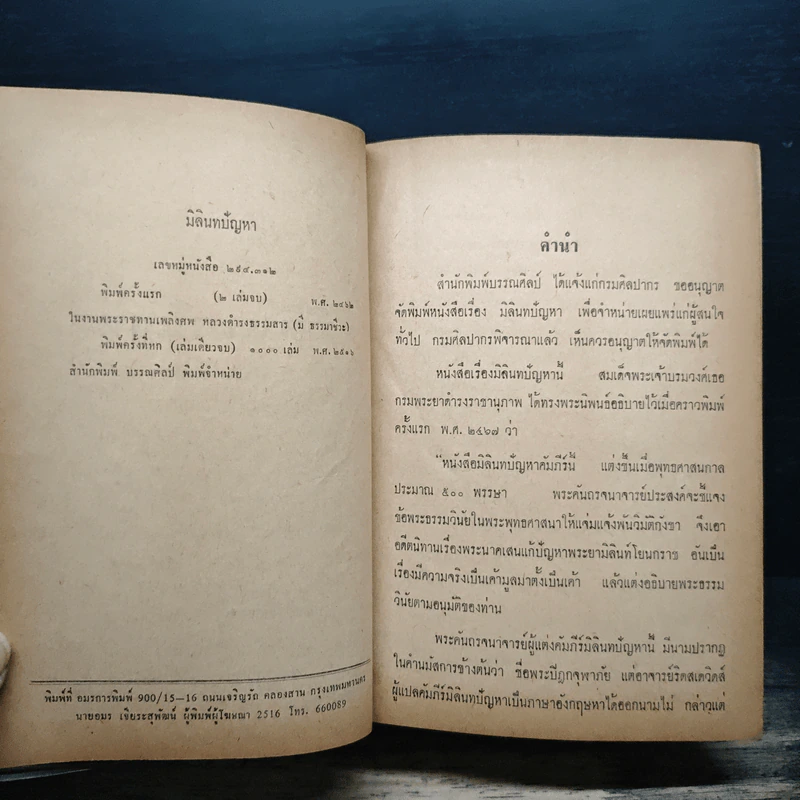 มิลินทปัญหา
เลขหมู่หนังสือ ๒๙๔.๓๑๒
พิมพ์ครั้งแรก (๒ เล่มจบ) พ.ศ. ๒๔๖๒
ในงานพระราชทานเพลิงศพ หลวงดำรงธรรมสาร (มี ธรรมาชีวะ)
พิมพ์ครั้งที่หก (เล่มเดียวจบ) ๑๐๐๐ เล่ม พ.ศ. ๒๕๑๖
สำนักพิมพ์ บรรณศิลป์ พิมพ์จำหน่าย
พิมพ์ที่ อมรการพิมพ์ 900/15–16 ถนนเจริญรัถ คลองสาน กรุงเทพมหานคร
นายอมร เชียระสุพัฒน์ ผู้พิมพ์ผู้โฆษณา 2516 โทร. 660089
คำนำ
สำนักพิมพ์บรรณศิลป์ ได้แจ้งแก่กรมศิลปากร ขออนุญาต
จัดพิมพ์หนังสือเรื่อง มิลินทปัญหา เพื่อจำหน่ายเผยแพร่แก่ผู้สนใจ
ทั่วไป กรมศิลปากรพิจารณาแล้ว เห็นควรอนุญาตให้จัดพิมพ์ได้
หนังสือเรื่องมิลินทปัญหานี้ สมเด็จพระเจ้าบรมวงศ์เธอ
กรมพระยาดำรงราชานุภาพ ได้ทรงพระนิพนธ์อธิบายไว้เมื่อคราวพิมพ์
ครั้งแรก พ.ศ. ๒๔๖๗ ว่า
"หนังสือมิลินทปัญหาคัมภีร์นี้ แต่งขึ้นเมื่อพุทธศาสนกาล
ประมาณ ๕๐๐ พรรษา พระคันถรจนาจารย์ประสงค์จะชี้แจง
ข้อพระธรรมวินัยในพระพุทธศาสนาให้แจ่มแจ้งพ้นวิมัติกังขา จึงเอา
อดีตนิทานเรื่องพระนาคเสนแก้ปัญหาพระยามิลินท์โยนกราช อันเป็น
เรื่องมีความจริงเป็นเค้ามูลมาตั้งเป็นเค้า แล้วแต่งอธิบายพระธรรม
วินัยตามอนุมัติของท่าน
พระคันถรจนาจารย์ผู้แต่งคัมภีร์มิลินทปัญหานี้ มีนามปรากฏ
ในคำนมัสการข้างต้นว่า ชื่อพระปิฎกจุฬาภัย แต่อาจารย์ริดสเดวิดส์
ผู้แปลคัมภีร์มิลินทปัญหาเป็นภาษาอังกฤษหาได้ออกนามไม่ กล่าวแต่